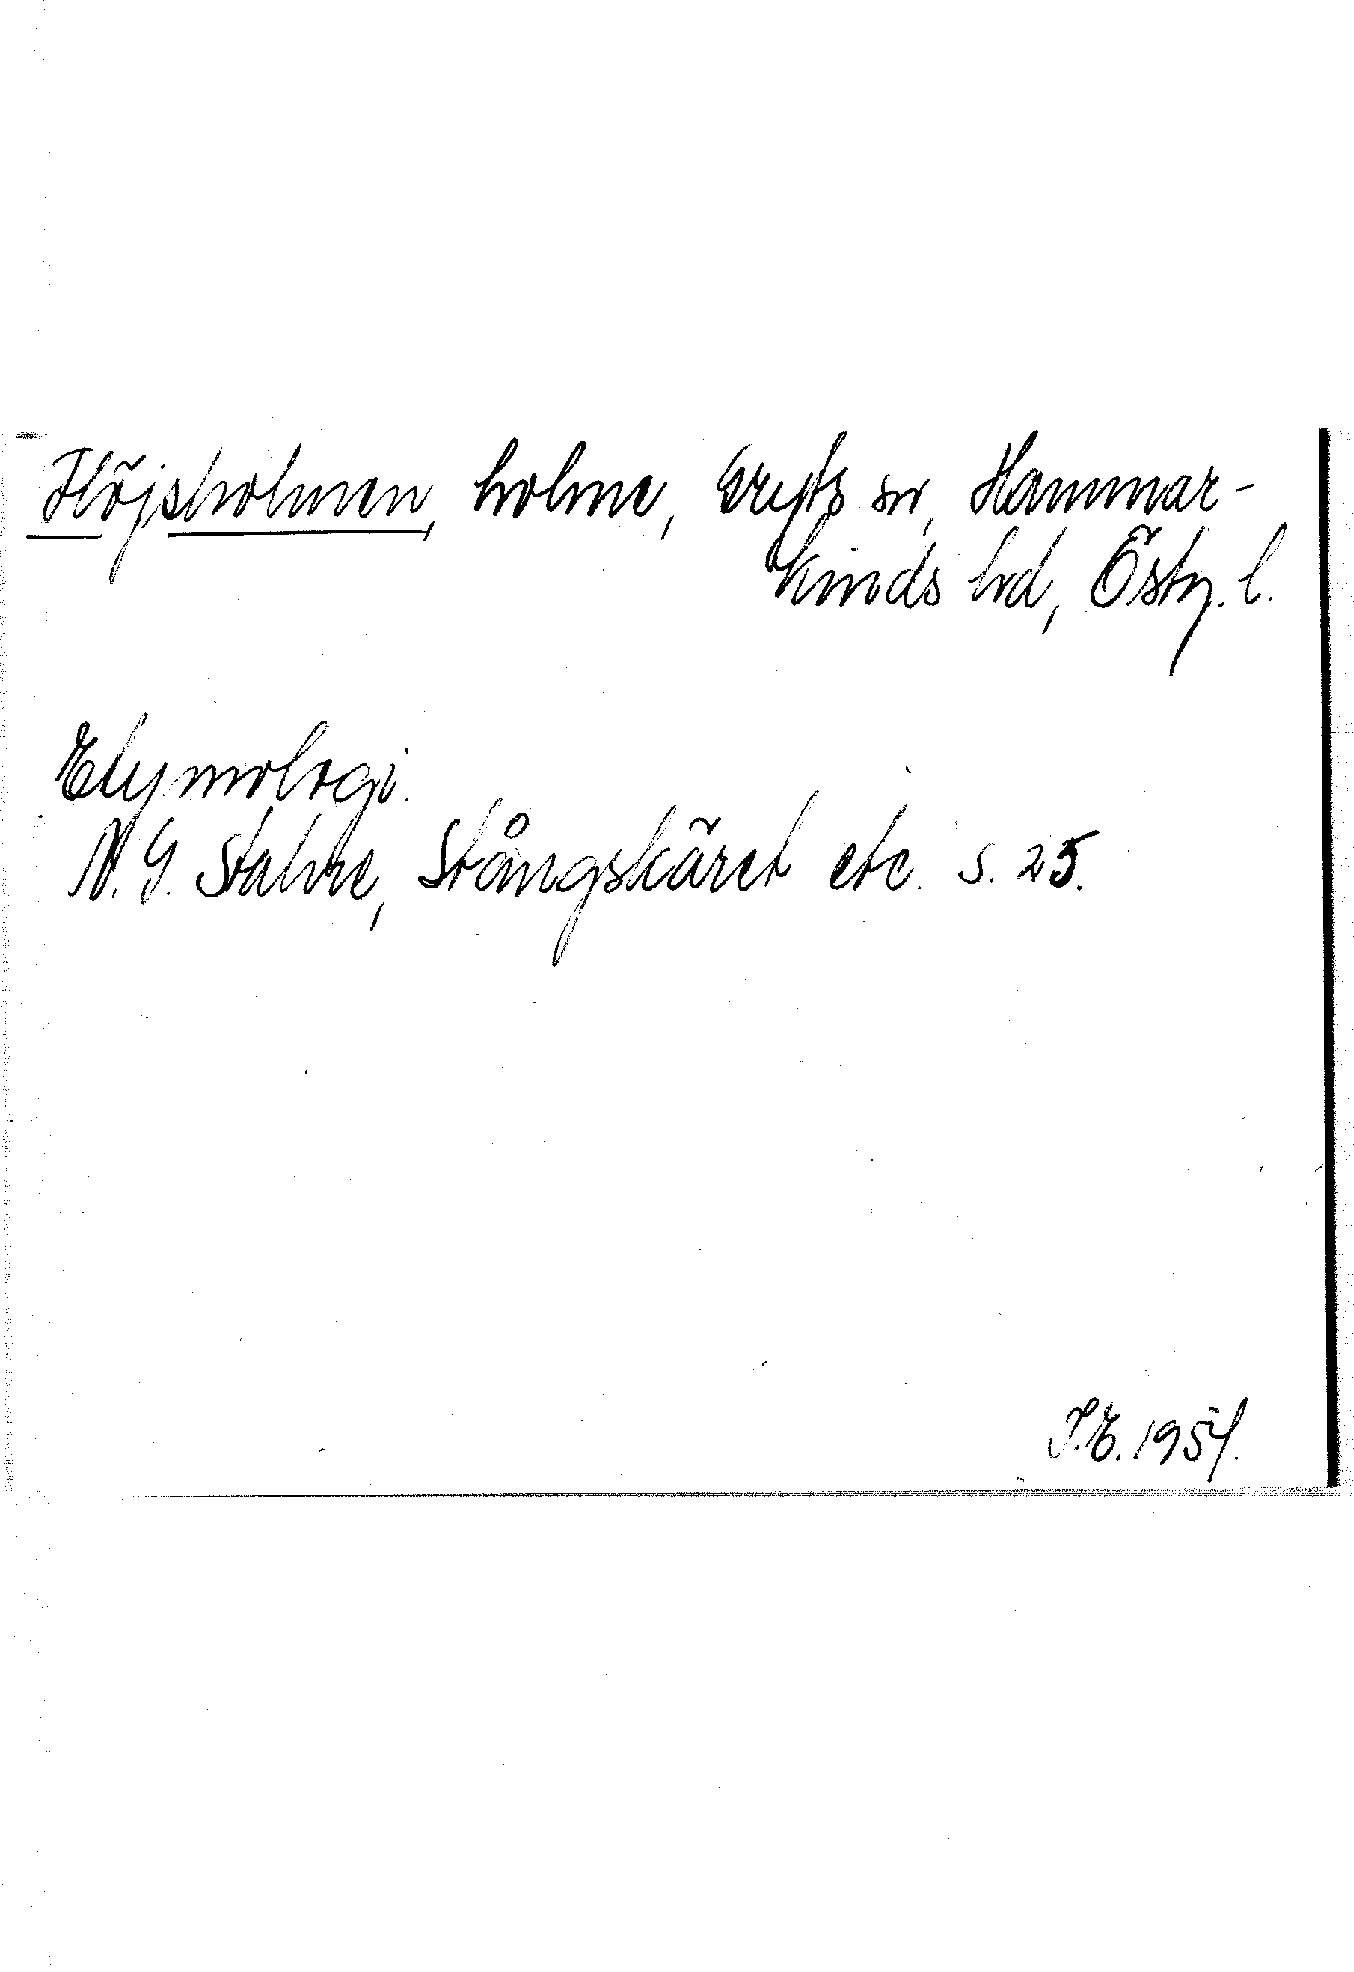 Flöjsholmen, holme, Gryts sn, Hammar-
kinds hd, Östg. l.
Etymologi.
N. G. Stahre, Stångskäret etc. s. 25.
I. E. 1954.